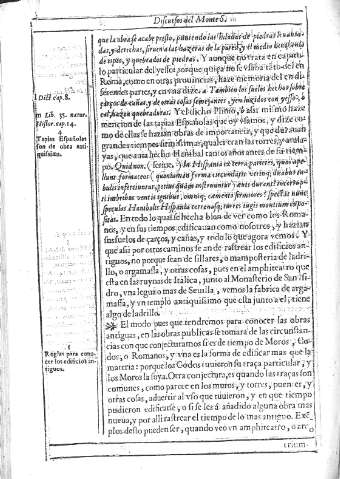 Discursos del Monte S.
que la obra se acabe presto, poniendo las piedras li
das, y derechas, siruen a las hazeras de la pared, y el medio
de ripio, y quebradas de piedras. Y aunque no trata en capitu
lo particular del yesso: porque quiça no se vsaua tãto del en
Roma, como en otras prouincias, haze memoria del en di
ferentes partes, y en vna dize: a Tambien los suelos hechos sobre
pieças de cañas, y de otras cosas semejantes, ven luzidos con yesso,
Y el dicho Plinio, assi mismo haze
mencion de las tapias Españolas que oy vsamos, y dize co
mo de ellas se hazian obras de importancia, y que durauan
grandes tiempos firmissimas, quales eran las torres, y atala
yas, que auia hecho Hanibal tantos años antes de su tiem
po. Quid non in Hispania ex terra parietes, quos appel
lant formaceos quoniam in forma circundatis vtrinq; duabus ta
bulis inferciuntur, potius quàm instruuntur, æuis durant incorrup
ti imbribus ventis ignibus, omniq; cæmento firmiores: spectat nunc
speculas Hanibalis Hispania terrenas, turres iugis montium impo
sitas. En todo lo qual se hecha bien de ver como los Roma
nos, y en sus tiempos edificauan como nosotros, y haziam
sus suelos de çarços, y cañas, y todo lo que agora vemos. Y
que assi por otros caminos se an de rastrear los edificios an
tiguos, no porque sean de sillares, o mamposteria de ladri
llo, o argamassa, y otras cosas, pues en el amphiteatro que
esta en las ruynas de Italica, junto al Monasterio de San Isi
dro, vna legua o mas de Seuilla, vemos la fabrica de argar
massa, y vn templo antiquissimo que esta junto a el, tiene
algo de ladrillo.
El modo pues que tendremos para conocer las obras
antiguas, en las obras publicas se tomara de las circunstan
cias con que conjecturamos si es de tiempo de Moros, Go
dos, o Romanos, y vna es la forma de edificar mas que la
materia: porque los Godos tuuieron su traça particular, y
los Moros la suya. Otra conjectura, es quando las traças son
comunes, como parece en los muros, y torres, puentes, y
otras cosas, aduertir al vso que tuuieron, y en que tiempo
pudieron edificarse, o si se le a añadido alguna obra mas
nueua, y por alli rastrear el tiempo de lo mas antiguo. Exẽ
plo desto puede ser, quando veo vn amphiteatro, o arco
trium-
l Dist cap. 8.
m Lib. 35. natur.
histor. cap. 14.
4
Tapias Españolas
son de obra anti
quissima.
5
Reglas para cono
cer los edificios an
tiguos.